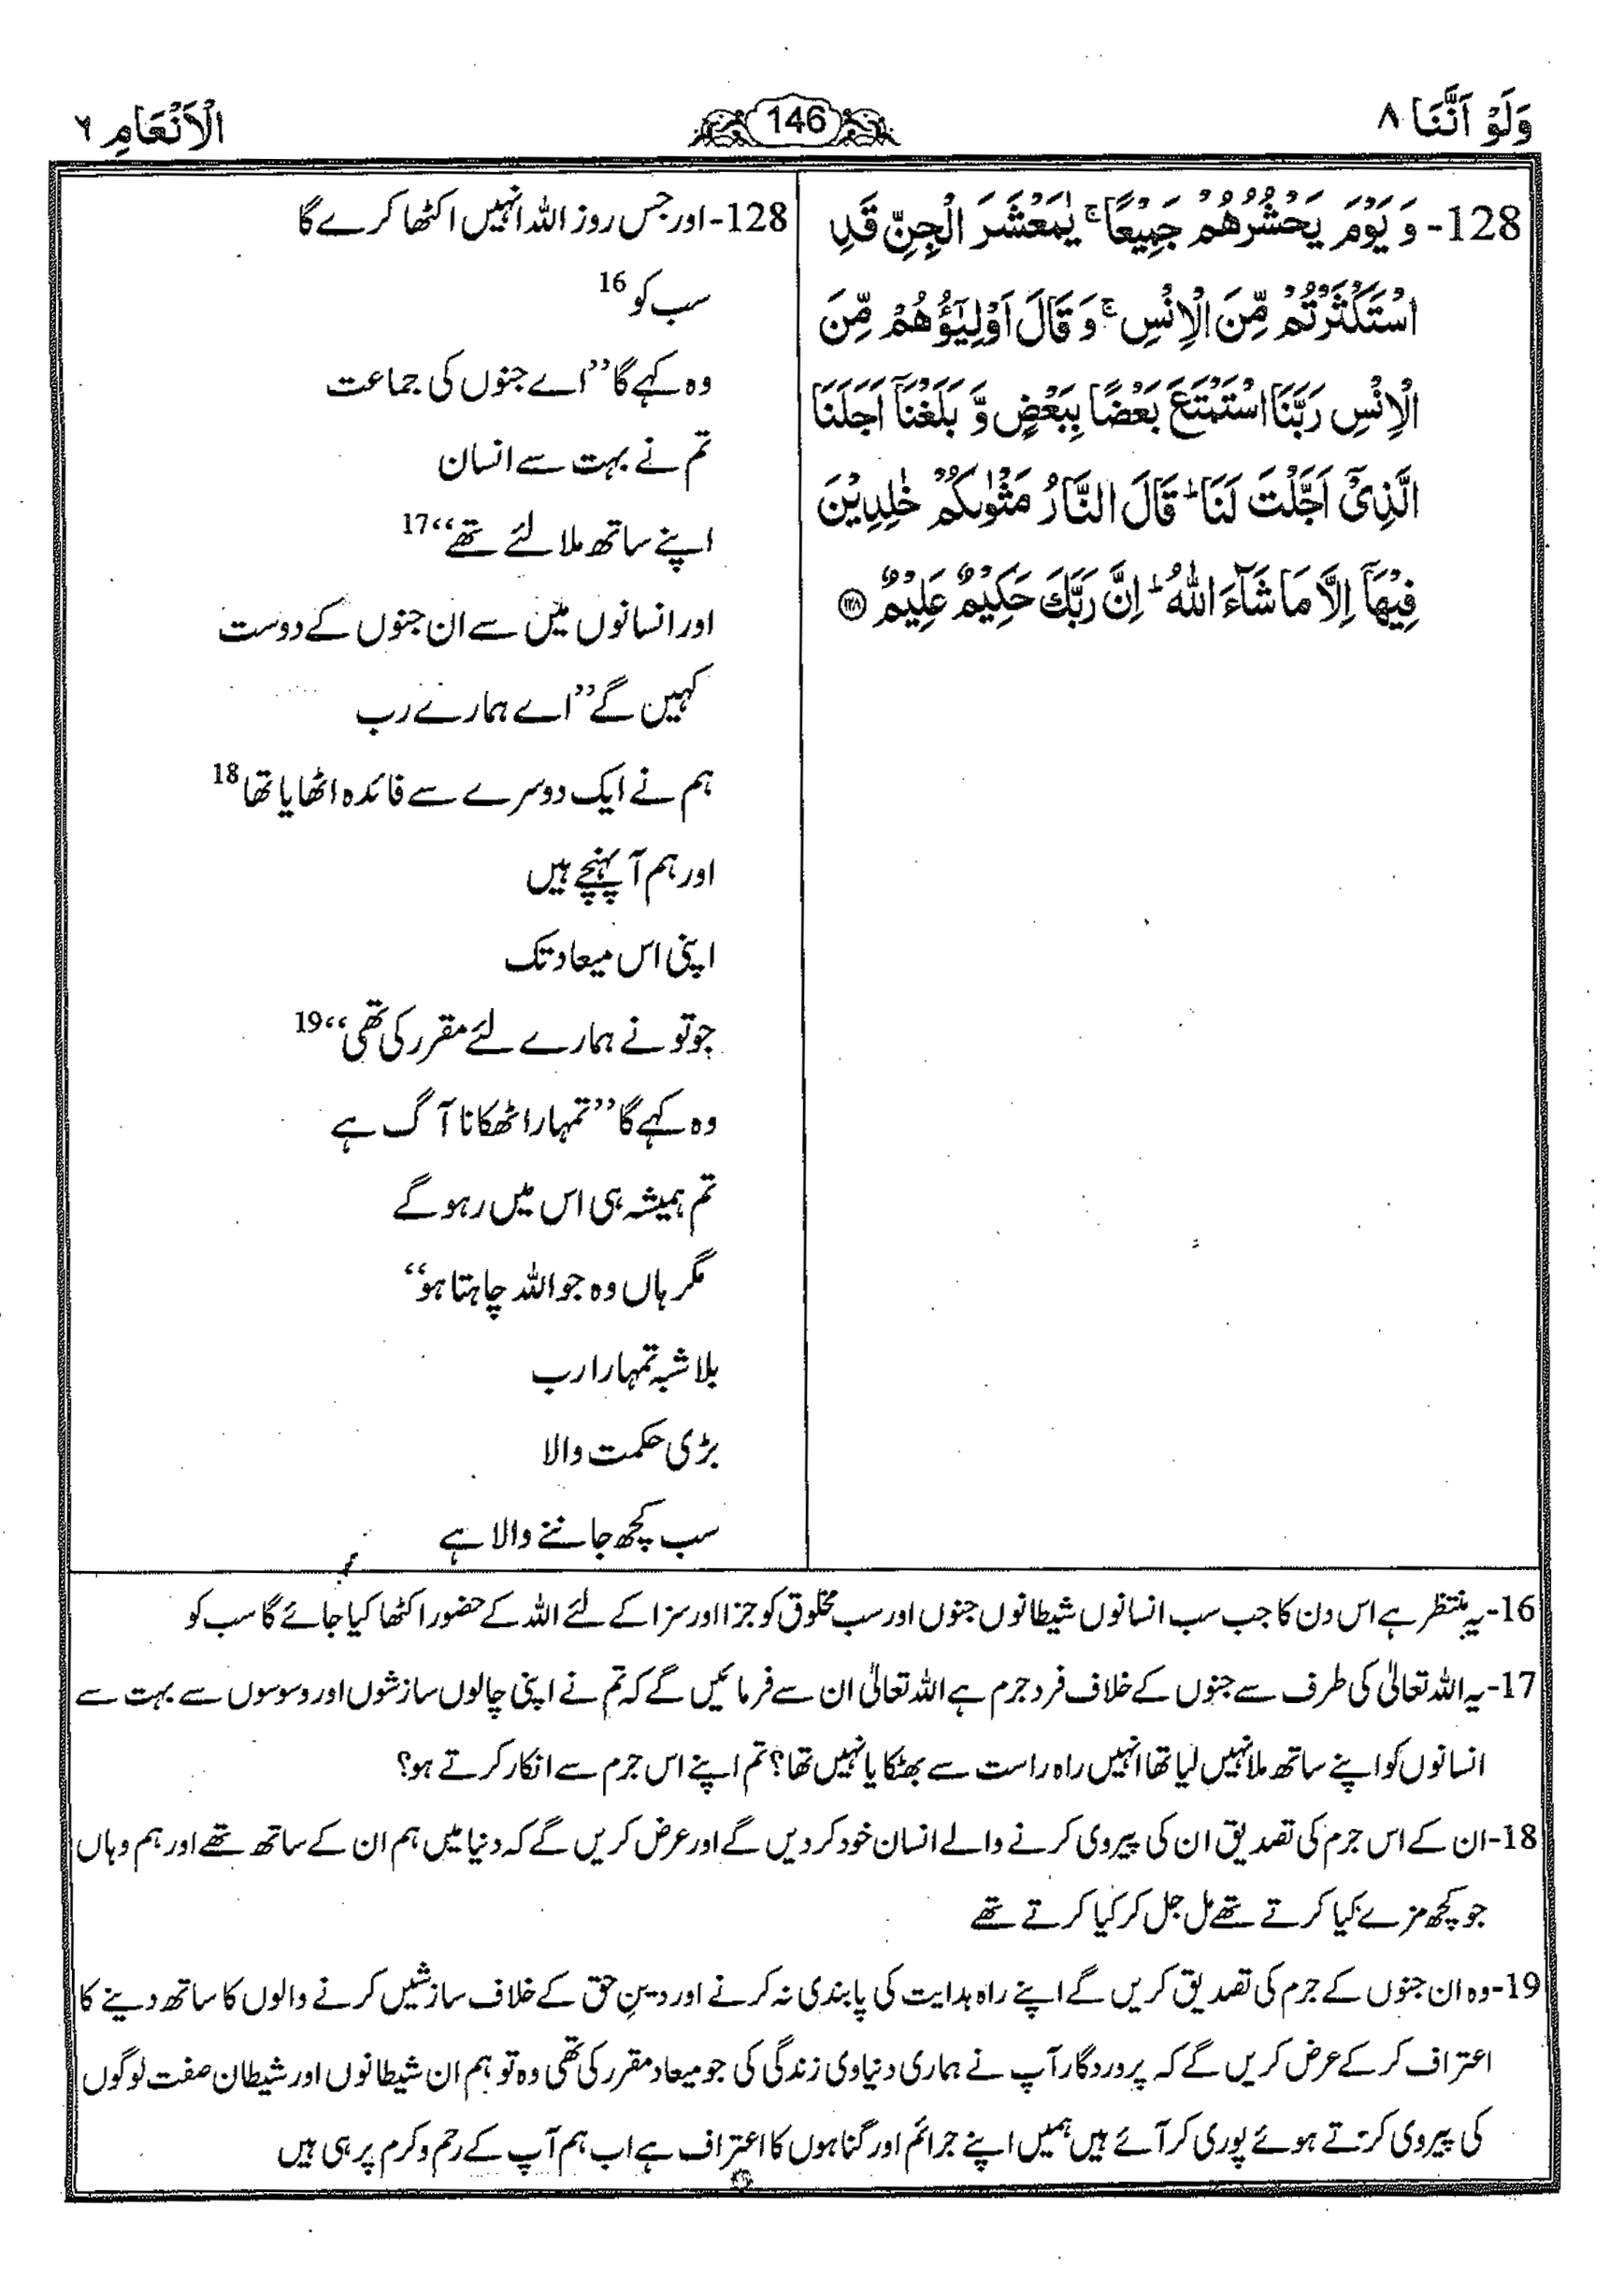 وَلَوْ اَنَّنَا ٨
146
الْاَنْعَامِ ٦
128- وَ يَوْمَ يَحْشُرُهُمْ جَمِيْعًا ۚ يٰمَعْشَرَ الْجِنِّ قَدِ
اسْتَكْثَرْتُمْ مِّنَ الْاِنْسِ ۚ وَ قَالَ اَوْلِيٰٓؤُهُمْ مِّنَ
الْاِنْسِ رَبَّنَا اسْتَمْتَعَ بَعْضُنَا بِبَعْضٍ وَّ بَلَغْنَاۤ اَجَلَنَا
الَّذِيْۤ اَجَّلْتَ لَنَا ؕ قَالَ النَّارُ مَثْوٰىكُمْ خٰلِدِيْنَ
فِيْهَاۤ اِلَّا مَا شَآءَ اللّٰهُ ؕ اِنَّ رَبَّكَ حَكِيْمٌ عَلِيْمٌ ﴿۱۲۸﴾
128- اور جس روز اللہ انہیں اکٹھا کرے گا
سب کو 16
وہ کہے گا ’’اے جنوں کی جماعت
تم نے بہت سے انسان
اپنے ساتھ ملا لئے تھے‘‘ 17
اور انسانوں میں سے ان جنوں کے دوست
کہیں گے ’’اے ہمارے رب
ہم نے ایک دوسرے سے فائدہ اٹھایا تھا 18
اور ہم آ پہنچے ہیں
اپنی اس میعاد تک
جو تو نے ہمارے لئے مقرر کی تھی‘‘ 19
وہ کہے گا ’’تمہارا ٹھکانا آگ ہے
تم ہمیشہ ہی اس میں رہو گے
مگر ہاں وہ جو اللہ چاہتا ہو‘‘
بلاشبہ تمہارا رب
بڑی حکمت والا
سب کچھ جاننے والا ہے
16- یہ منتظر ہے اس دن کا جب سب انسانوں شیطانوں جنوں اور سب مخلوق کو جزا اور سزا کے لئے اللہ کے حضور اکٹھا کیا جائے گا سب کو
17- یہ اللہ تعالیٰ کی طرف سے جنوں کے خلاف فرد جرم ہے اللہ تعالیٰ ان سے فرمائیں گے کہ تم نے اپنی چالوں سازشوں اور وسوسوں سے بہت سے
انسانوں کو اپنے ساتھ ملا نہیں لیا تھا انہیں راہ راست سے بھٹکایا نہیں تھا؟ تم اپنے اس جرم سے انکار کرتے ہو؟
18- ان کے اس جرم کی تصدیق ان کی پیروی کرنے والے انسان خود کر دیں گے اور عرض کریں گے کہ دنیا میں ہم ان کے ساتھ تھے اور ہم وہاں
جو کچھ مزے کیا کرتے تھے مل جل کر کیا کرتے تھے
19- وہ ان جنوں کے جرم کی تصدیق کریں گے اپنے راہ ہدایت کی پابندی نہ کرنے اور دینِ حق کے خلاف سازشیں کرنے والوں کا ساتھ دینے کا
اعتراف کر کے عرض کریں گے کہ پروردگار آپ نے ہماری دنیاوی زندگی کی جو میعاد مقرر کی تھی وہ تو ہم ان شیطانوں اور شیطان صفت لوگوں
کی پیروی کرتے ہوئے پوری کر آئے ہیں ہمیں اپنے جرائم اور گناہوں کا اعتراف ہے اب ہم آپ کے رحم و کرم پر ہی ہیں